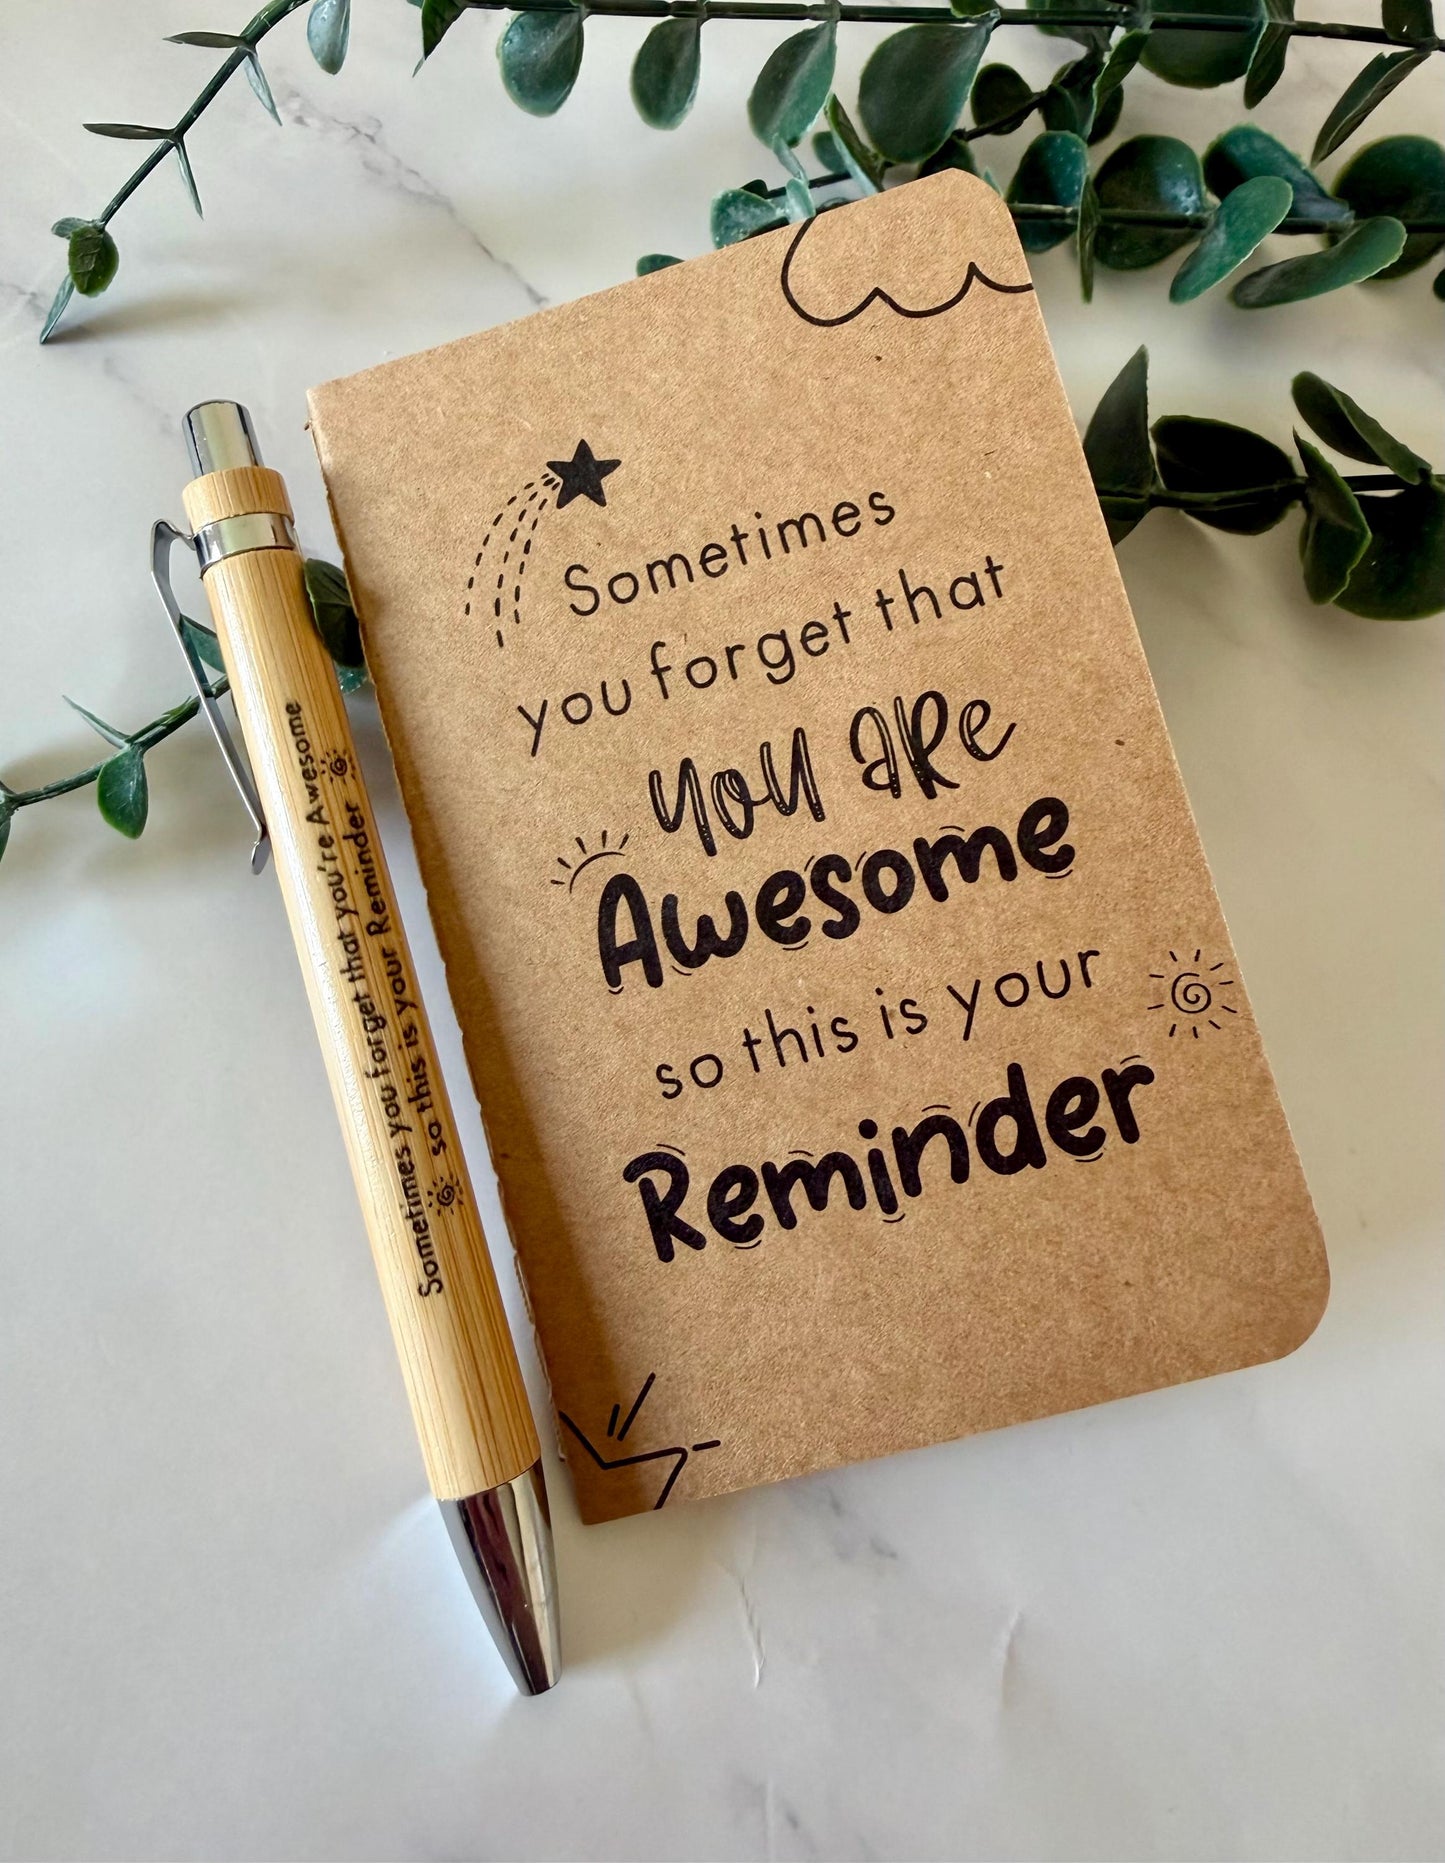 Sometimes
you forget that
you are
Awesome
so this is your
Reminder
Sometimes you forget that you're Awesome
so this is your Reminder